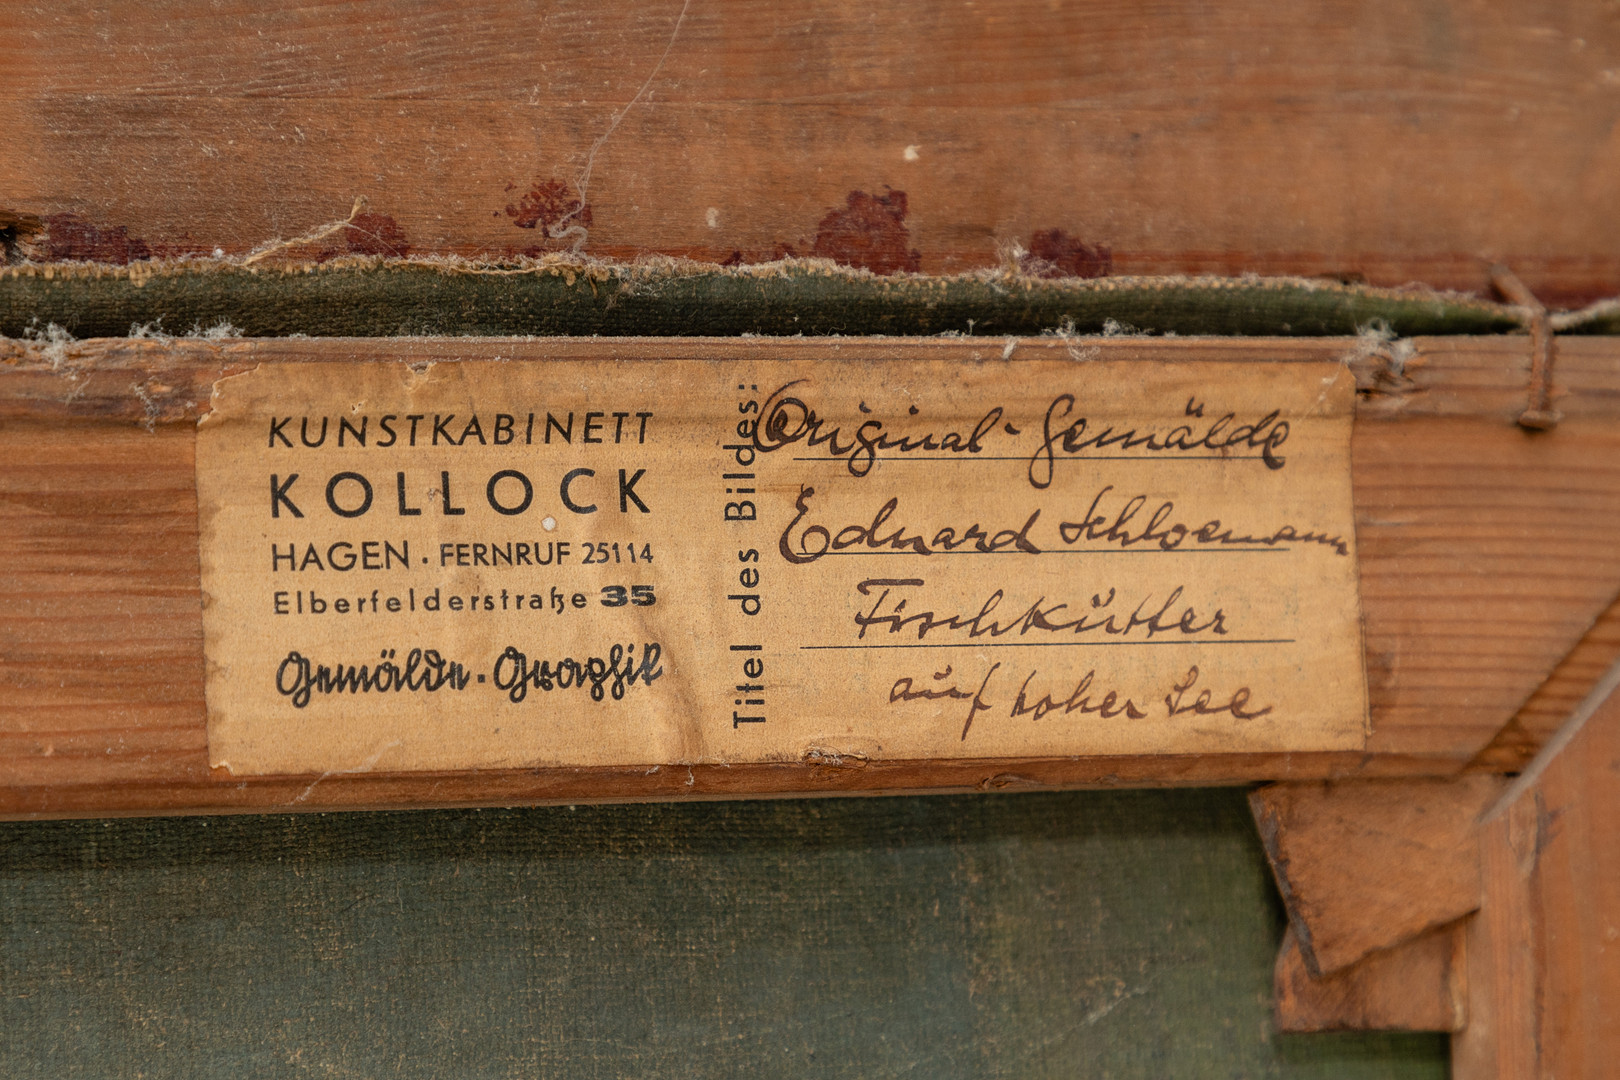 KUNSTKABINETT
KOLLOCK
HAGEN · FERNRUF 25114
Elberfelderstraße 35
Gemälde · Graphik
Titel des Bildes:
Original-Gemälde
Eduard Schloemann
Fischkütter
auf hoher See